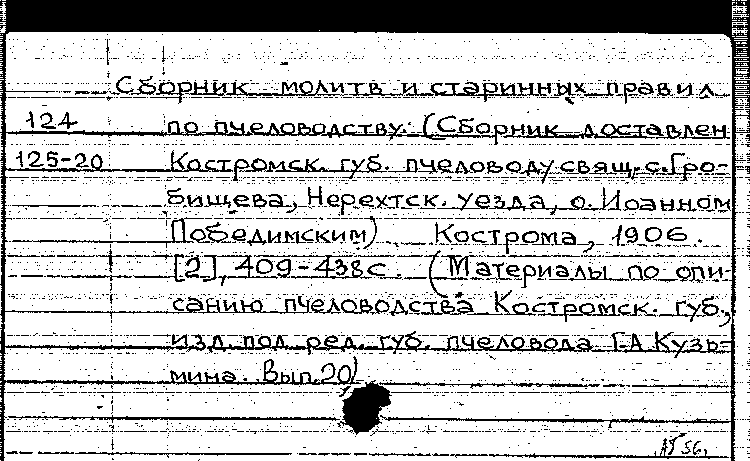 Сборник молитв и старинных правил
124 по пчеловодству. (Сборник доставлен
125-20 Костромск. губ. пчеловоду свящ. с. Гро-
бищева, Нерехтск. уезда, о. Иоанном
Победимским) Кострома, 1906.
[2], 409-438с. (Материалы по опи-
санию пчеловодства Костромск. губ.,
изд. под ред. губ. пчеловода Г.А. Кузь-
мина. Вып. 20)